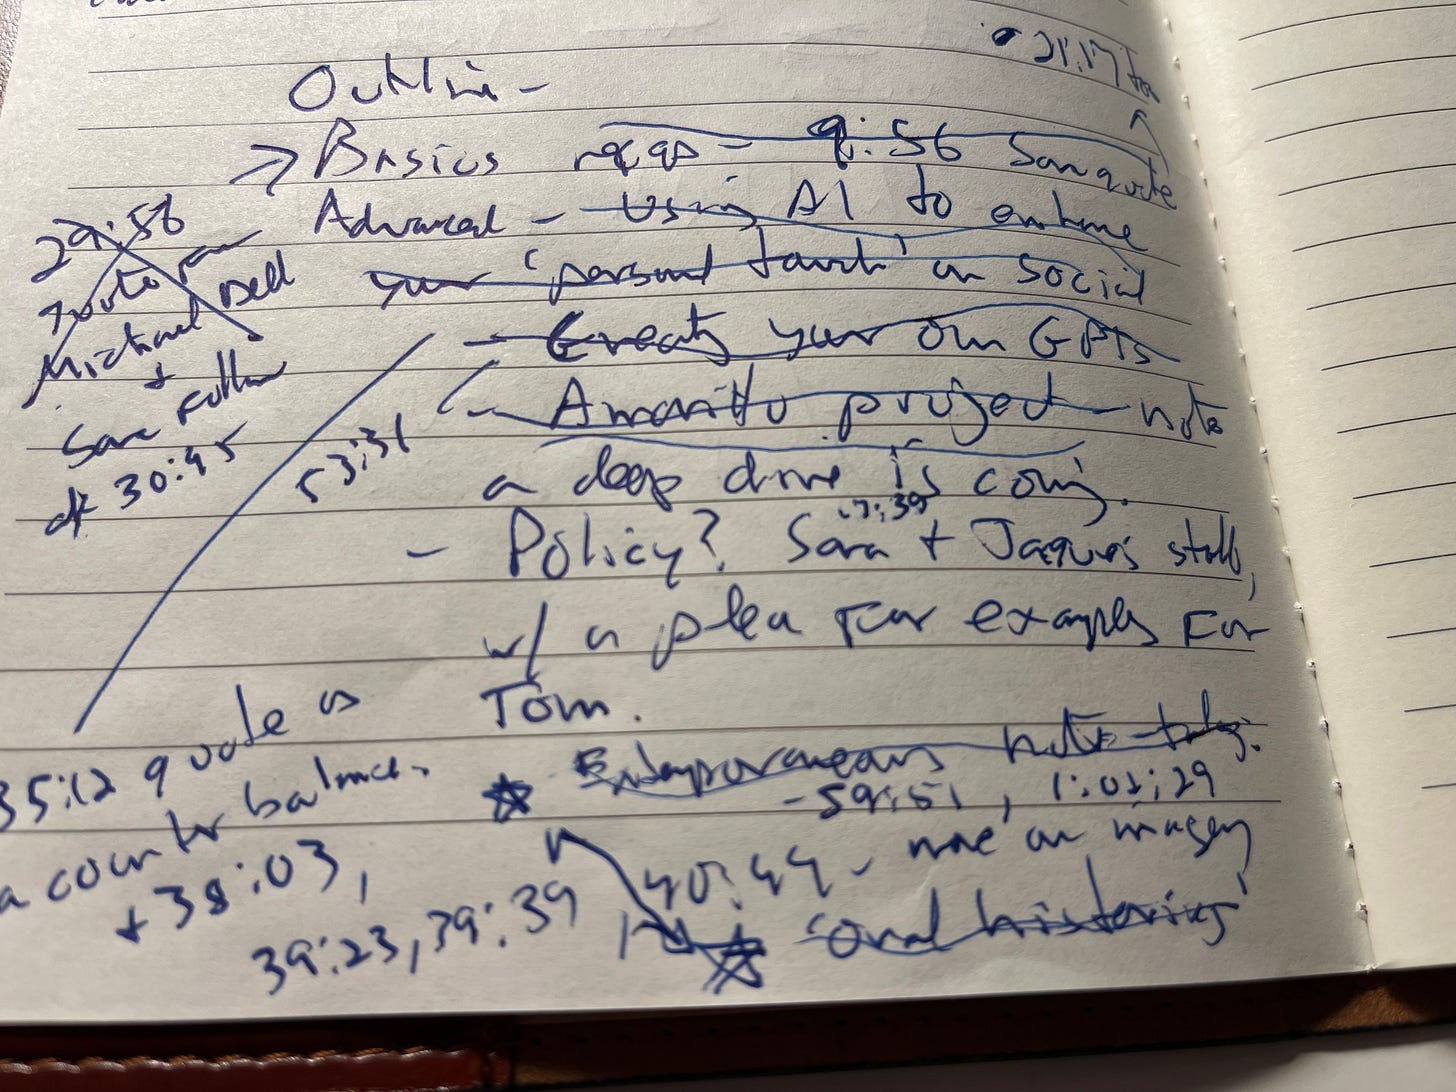 21:17 too
Outline -
→ Basics recap - 9:56 Sam quote
Advanced - Using AI to enhance
your 'personal touch' on social
- Creating your own GPTs
- Amarillo project - note
a deep dive is coming.
- Policy? Sara + Jaques stuff,
17:39
w/ a plea for examples for
Tom.
note
- 59:51, 1:02:29
40:44 - more on imagery
'oral histories'
29:56
Michael Dell
+
Sara follow
at 30:45
53:31
35:12 quote as
a counter balance.
+ 38:03,
39:23, 39:39